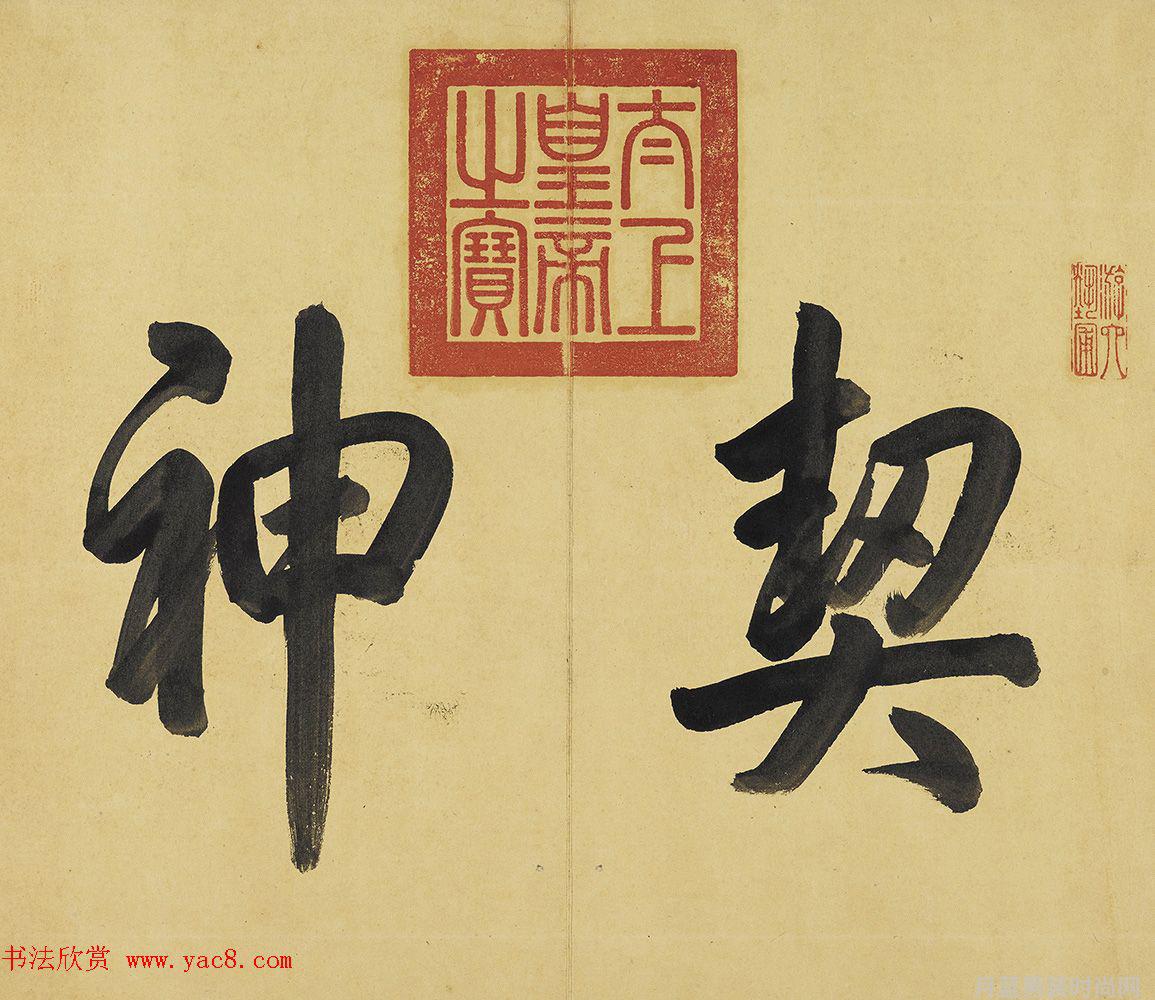 太上
皇帝
之寶
游六
藝圃
契神
书法欣赏 www.yac8.com